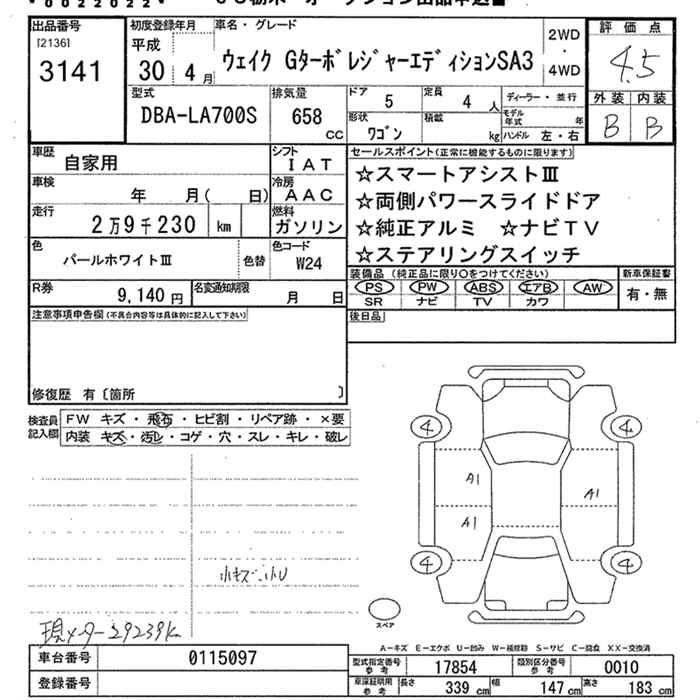 出品番号 初度登録年月 車名・グレード 2WD・4WD 評価点
[2136]
3141
平成
30 4月
ウェイク GターボレジャーエディションSA3
4.5
型式 排気量 ドア 5 定員 4人 ディーラー・並行 外装 内装
DBA-LA700S 658 CC 形状 ワゴン 積載 kg モデル年式 年 B B
ハンドル 左・右
車歴 自家用 シフト IAT セールスポイント(正常に機能するものに限ります)
☆スマートアシストⅢ
車検 年 月( 日) 冷房 AAC ☆両側パワースライドドア
走行 2万9千230 km 燃料 ガソリン ☆純正アルミ ☆ナビTV
☆ステアリングスイッチ
色 パールホワイトⅢ 色替 色コード W24
装備品(純正品に限り○をつけてください) 新車保証書
R券 9,140円 名変通知期限 月 日 PS PW ABS エアB AW 有・無
SR ナビ TV カワ
注意事項申告欄(不具合内容等は具体的に記入して下さい) 後日品
修復歴 有〔箇所 〕
検査員記入欄 FW キズ・飛石・ヒビ割・リペア跡・×要
内装 キズ・汚レ・コゲ・穴・スレ・キレ・破レ
4 4
A1
A1
A1
4 4
小キズ・小U
スペア
現メーター29239km
A-キズ E-エクボ U-凹み W-補修跡 S-サビ C-腐食 XX-交換済
車台番号 0115097 型式指定番号 参考 17854 類別区分番号 参考 0010
登録番号 車庫証明用 参考 長さ 339cm 幅 147cm 高さ 183cm